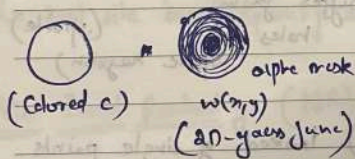 alpha mask
(Colored c) w(x,y)
(2D-gauss func)